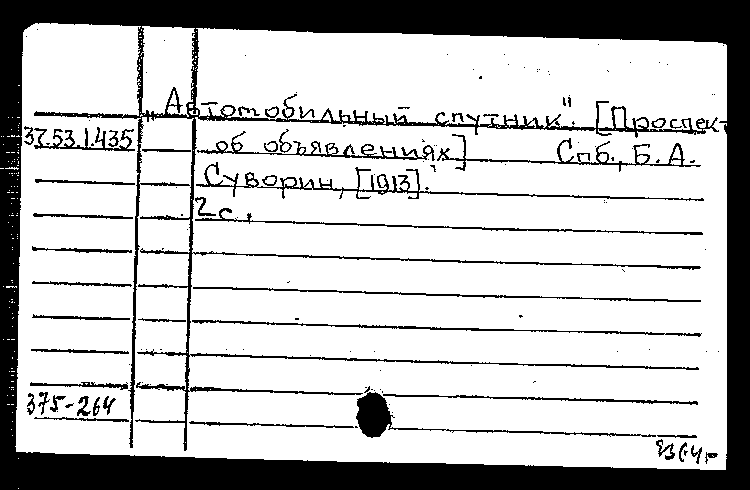 „Автомобильный спутник". [Проспект
37.53.1.435 об объявлениях] Спб., Б. А.
Суворин, [1913].
2 с.
375-264